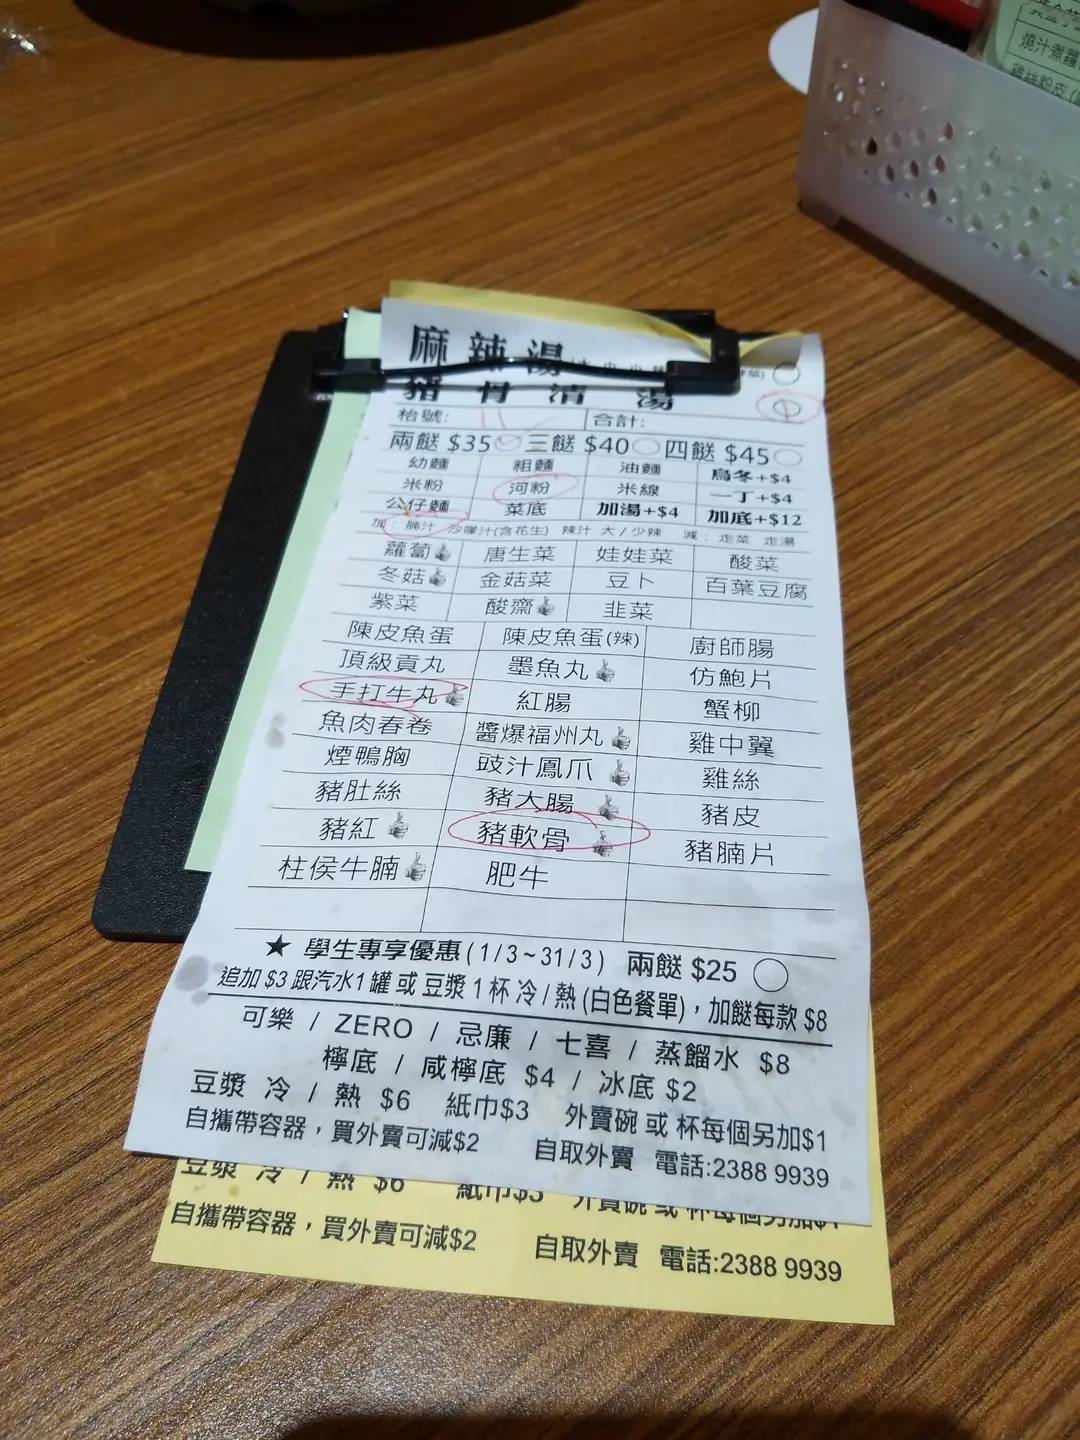 燒汁煮蘿
雞絲粉皮
麻辣湯
豬骨清湯
枱號: 11 合計:
兩餸 $35 三餸 $40 四餸 $45
幼麵 粗麵 油麵 烏冬+$4
米粉 河粉 米線 一丁+$4
公仔麵 菜底 加湯+$4 加底+$12
加: 腩汁 沙嗲汁(含花生) 辣汁 大/少辣 減: 走菜 走湯
蘿蔔 唐生菜 娃娃菜 酸菜
冬菇 金菇菜 豆卜 百葉豆腐
紫菜 酸齋 韭菜
陳皮魚蛋 陳皮魚蛋(辣) 廚師腸
頂級貢丸 墨魚丸 仿鮑片
手打牛丸 紅腸 蟹柳
魚肉春卷 醬爆福州丸 雞中翼
煙鴨胸 豉汁鳳爪 雞絲
豬肚絲 豬大腸 豬皮
豬紅 豬軟骨 豬腩片
柱侯牛腩 肥牛
★ 學生專享優惠(1/3~31/3) 兩餸 $25
追加 $3 跟汽水1罐 或 豆漿 1 杯 冷/熱 (白色餐單), 加餸每款 $8
可樂 / ZERO / 忌廉 / 七喜 / 蒸餾水 $8
檸底 / 咸檸底 $4 / 冰底 $2
豆漿 冷 / 熱 $6 紙巾$3 外賣碗 或 杯每個另加$1
自攜帶容器，買外賣可減$2 自取外賣 電話:2388 9939
豆漿 冷 / 熱 $6 紙巾$3 外賣碗 或 杯每個另加$1
自攜帶容器，買外賣可減$2 自取外賣 電話:2388 9939